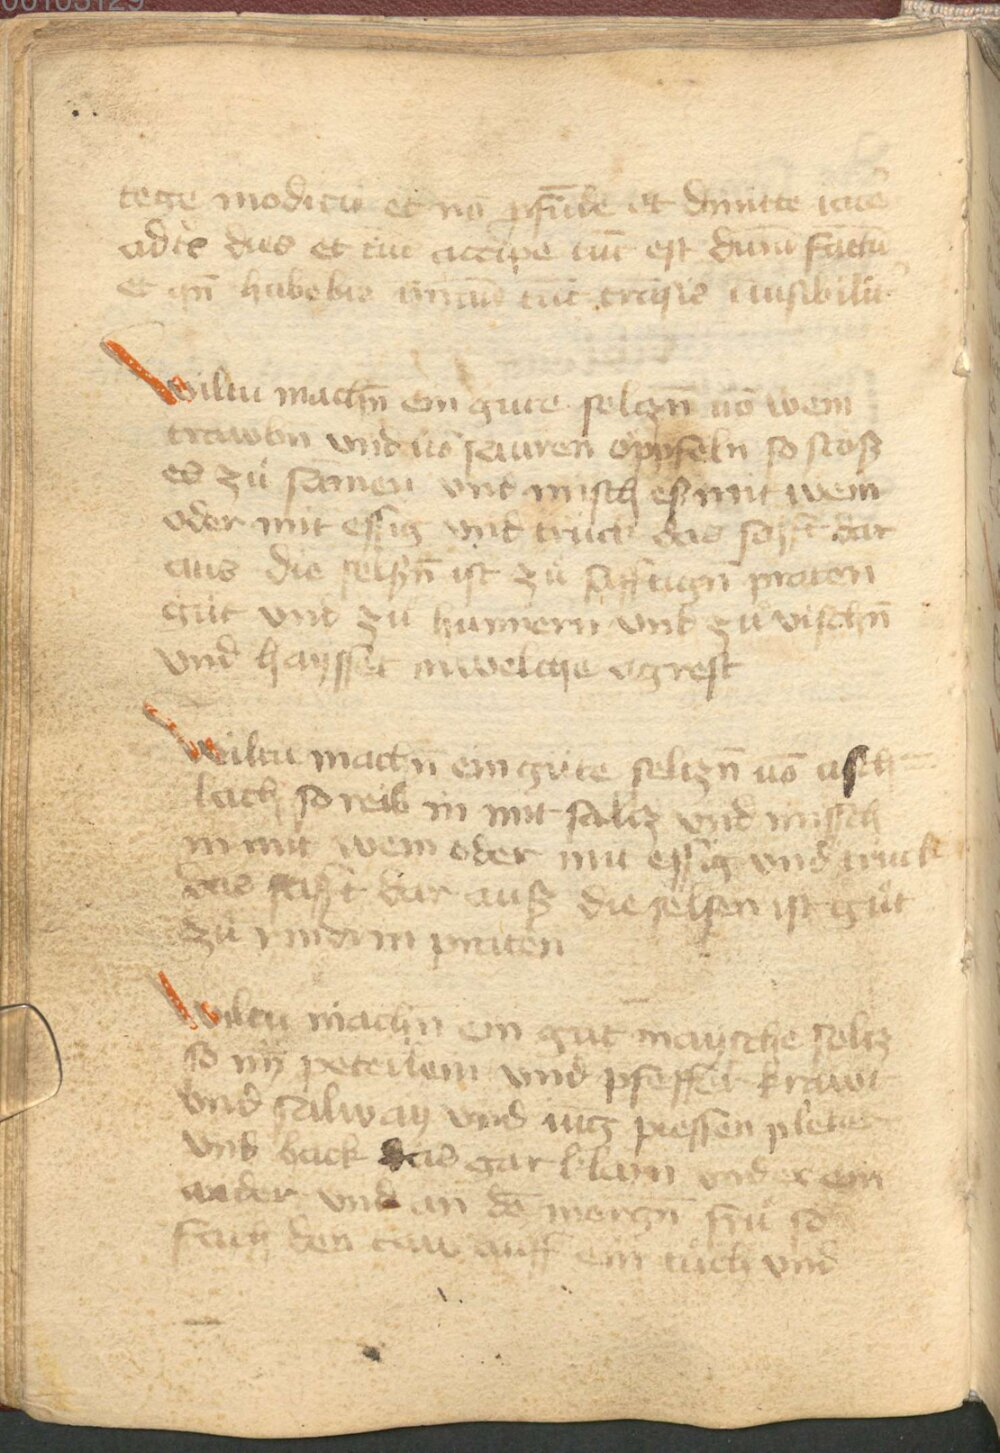 00103129
tege modicū et nō ꝓfūde et dimitte iacē
ad tᷓs dies et tūc accipe tūc est dimī factū
et qn̄ habebis tūc trāsis īuisibilit᷑
Wiltu machn̄ ein gute selczn̄ uō wein
trawbn vnd uō sauren öppfeln so stoß
es zů samen vnd misch eß mit wein
oder mit essig vnd truck das safft dar
aus die selszn̄ ist zů safftign̄ praten
gůt vnd zu hunnern vnd zů vischn̄
vnd haysset in welche agrest
Wiltu machn̄ ein gůte selczn̄ uō asch
lach so reib in mit saltz vnd misch
in mit wein oder mit essig vnd truck
das safft dar auß die selsen ist gůt
zů rindrin praten
Wiltu machn̄ ein gut maysche seltz
so nȳ peterlein vnd pfeffer krawt
vnd salway vnd iūg piessen pleter
vnd hack das gar klayn vnder ein
ander vnd an dē morgn̄ frů so
fach den taw auff ein tuch vnd